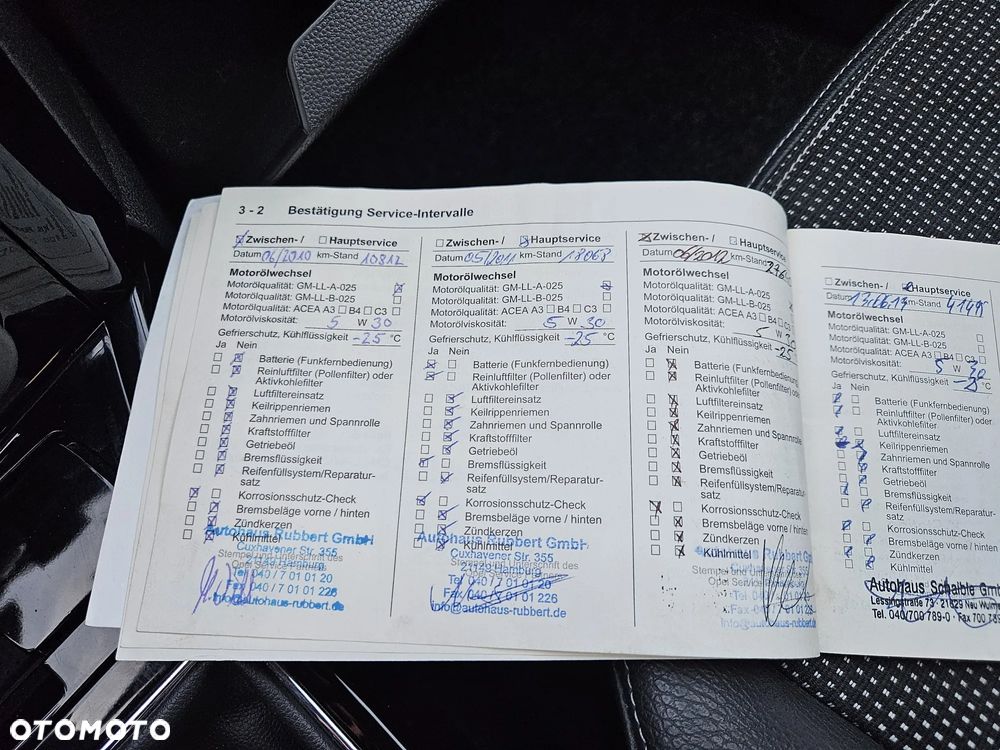 3 - 2 Bestätigung Service-Intervalle
☒ Zwischen- / ☐ Hauptservice
Datum 06/2010 km-Stand 10812
Motorölwechsel
Motorölqualität: GM-LL-A-025 ☒
Motorölqualität: GM-LL-B-025 ☐
Motorölqualität: ACEA A3 ☐ B4 ☐ C3 ☐
Motorölviskosität: 5 W 30
Gefrierschutz, Kühlflüssigkeit -25 °C
Ja Nein
☐ ☒ Batterie (Funkfernbedienung)
☐ ☒ Reinluftfilter (Pollenfilter) oder
Aktivkohlefilter
☐ ☒ Luftfiltereinsatz
☐ ☒ Keilrippenriemen
☐ ☒ Zahnriemen und Spannrolle
☐ ☒ Kraftstofffilter
☐ ☒ Getriebeöl
☐ ☒ Bremsflüssigkeit
☐ ☒ Reifenfüllsystem/Reparatur-
satz
☒ ☐ Korrosionsschutz-Check
☐ ☒ Bremsbeläge vorne / hinten
☐ ☒ Zündkerzen
☐ ☒ Kühlmittel
Autohaus Rubbert GmbH
Cuxhavener Str. 355
Stempel und Unterschrift des
21149 Hamburg
Tel. 040 / 7 01 01 20
Fax 040 / 7 01 01 226
info@autohaus-rubbert.de
☐ Zwischen- / ☒ Hauptservice
Datum 05/2011 km-Stand 18068
Motorölwechsel
Motorölqualität: GM-LL-A-025 ☒
Motorölqualität: GM-LL-B-025 ☐
Motorölqualität: ACEA A3 ☐ B4 ☐ C3 ☐
Motorölviskosität: 5 W 30
Gefrierschutz, Kühlflüssigkeit -25 °C
Ja Nein
☒ ☐ Batterie (Funkfernbedienung)
☒ ☐ Reinluftfilter (Pollenfilter) oder
Aktivkohlefilter
☐ ☒ Luftfiltereinsatz
☐ ☒ Keilrippenriemen
☐ ☒ Zahnriemen und Spannrolle
☐ ☒ Kraftstofffilter
☐ ☒ Getriebeöl
☒ ☐ Bremsflüssigkeit
☐ ☒ Reifenfüllsystem/Reparatur-
satz
☒ ☐ Korrosionsschutz-Check
☐ ☒ Bremsbeläge vorne / hinten
☐ ☒ Zündkerzen
☐ ☒ Kühlmittel
Autohaus Rubbert GmbH
Cuxhavener Str. 355
21149 Hamburg
Tel. 040 / 7 01 01 20
Fax 040 / 7 01 01 226
info@autohaus-rubbert.de
☒ Zwischen- / ☐ Hauptservice
Datum 06/2012 km-Stand
Motorölwechsel
Motorölqualität: GM-LL-A-025
Motorölqualität: GM-LL-B-025 ☐
Motorölqualität: ACEA A3 ☐ B4 ☐ C3 ☐
Motorölviskosität: 5 W 30
Gefrierschutz, Kühlflüssigkeit -25
Ja Nein
☐ ☒ Batterie (Funkfernbedienung)
☐ ☒ Reinluftfilter (Pollenfilter) oder
Aktivkohlefilter
☐ ☒ Luftfiltereinsatz
☐ ☒ Keilrippenriemen
☐ ☒ Zahnriemen und Spannrolle
☐ ☒ Kraftstofffilter
☐ ☒ Getriebeöl
☐ ☒ Bremsflüssigkeit
☐ ☒ Reifenfüllsystem/Reparatur-
satz
☒ ☐ Korrosionsschutz-Check
☐ ☒ Bremsbeläge vorne / hinten
☐ ☒ Zündkerzen
☐ ☒ Kühlmittel
Autohaus Rubbert GmbH
Cuxhavener Str. 355
Stempel und
Opel Service
Tel. 040 / 7 01 01 20
Fax 040 / 7 01 01 226
info@autohaus-rubbert.de
☐ Zwischen- / ☒ Hauptservice
Datum 13.06.13 km-Stand
Motorölwechsel
Motorölqualität: GM-LL-A-025 ☐
Motorölqualität: GM-LL-B-025 ☐
Motorölqualität: ACEA A3 ☐ B4 ☐ C3 ☐
Motorölviskosität: 5 W 30
Gefrierschutz, Kühlflüssigkeit °C
Ja Nein
Batterie (Funkfernbedienung)
Reinluftfilter (Pollenfilter) oder
Aktivkohlefilter
Luftfiltereinsatz
Keilrippenriemen
Zahnriemen und Spannrolle
Kraftstofffilter
Getriebeöl
Bremsflüssigkeit
Reifenfüllsystem/Reparatur-
satz
Korrosionsschutz-Check
Bremsbeläge vorne / hinten
Zündkerzen
Kühlmittel
Autohaus Schaible Gm
Lessingstraße 73 · 21629 Neu Wulm
Tel. 040/700 789-0 · Fax 700 789
OTOMOTO